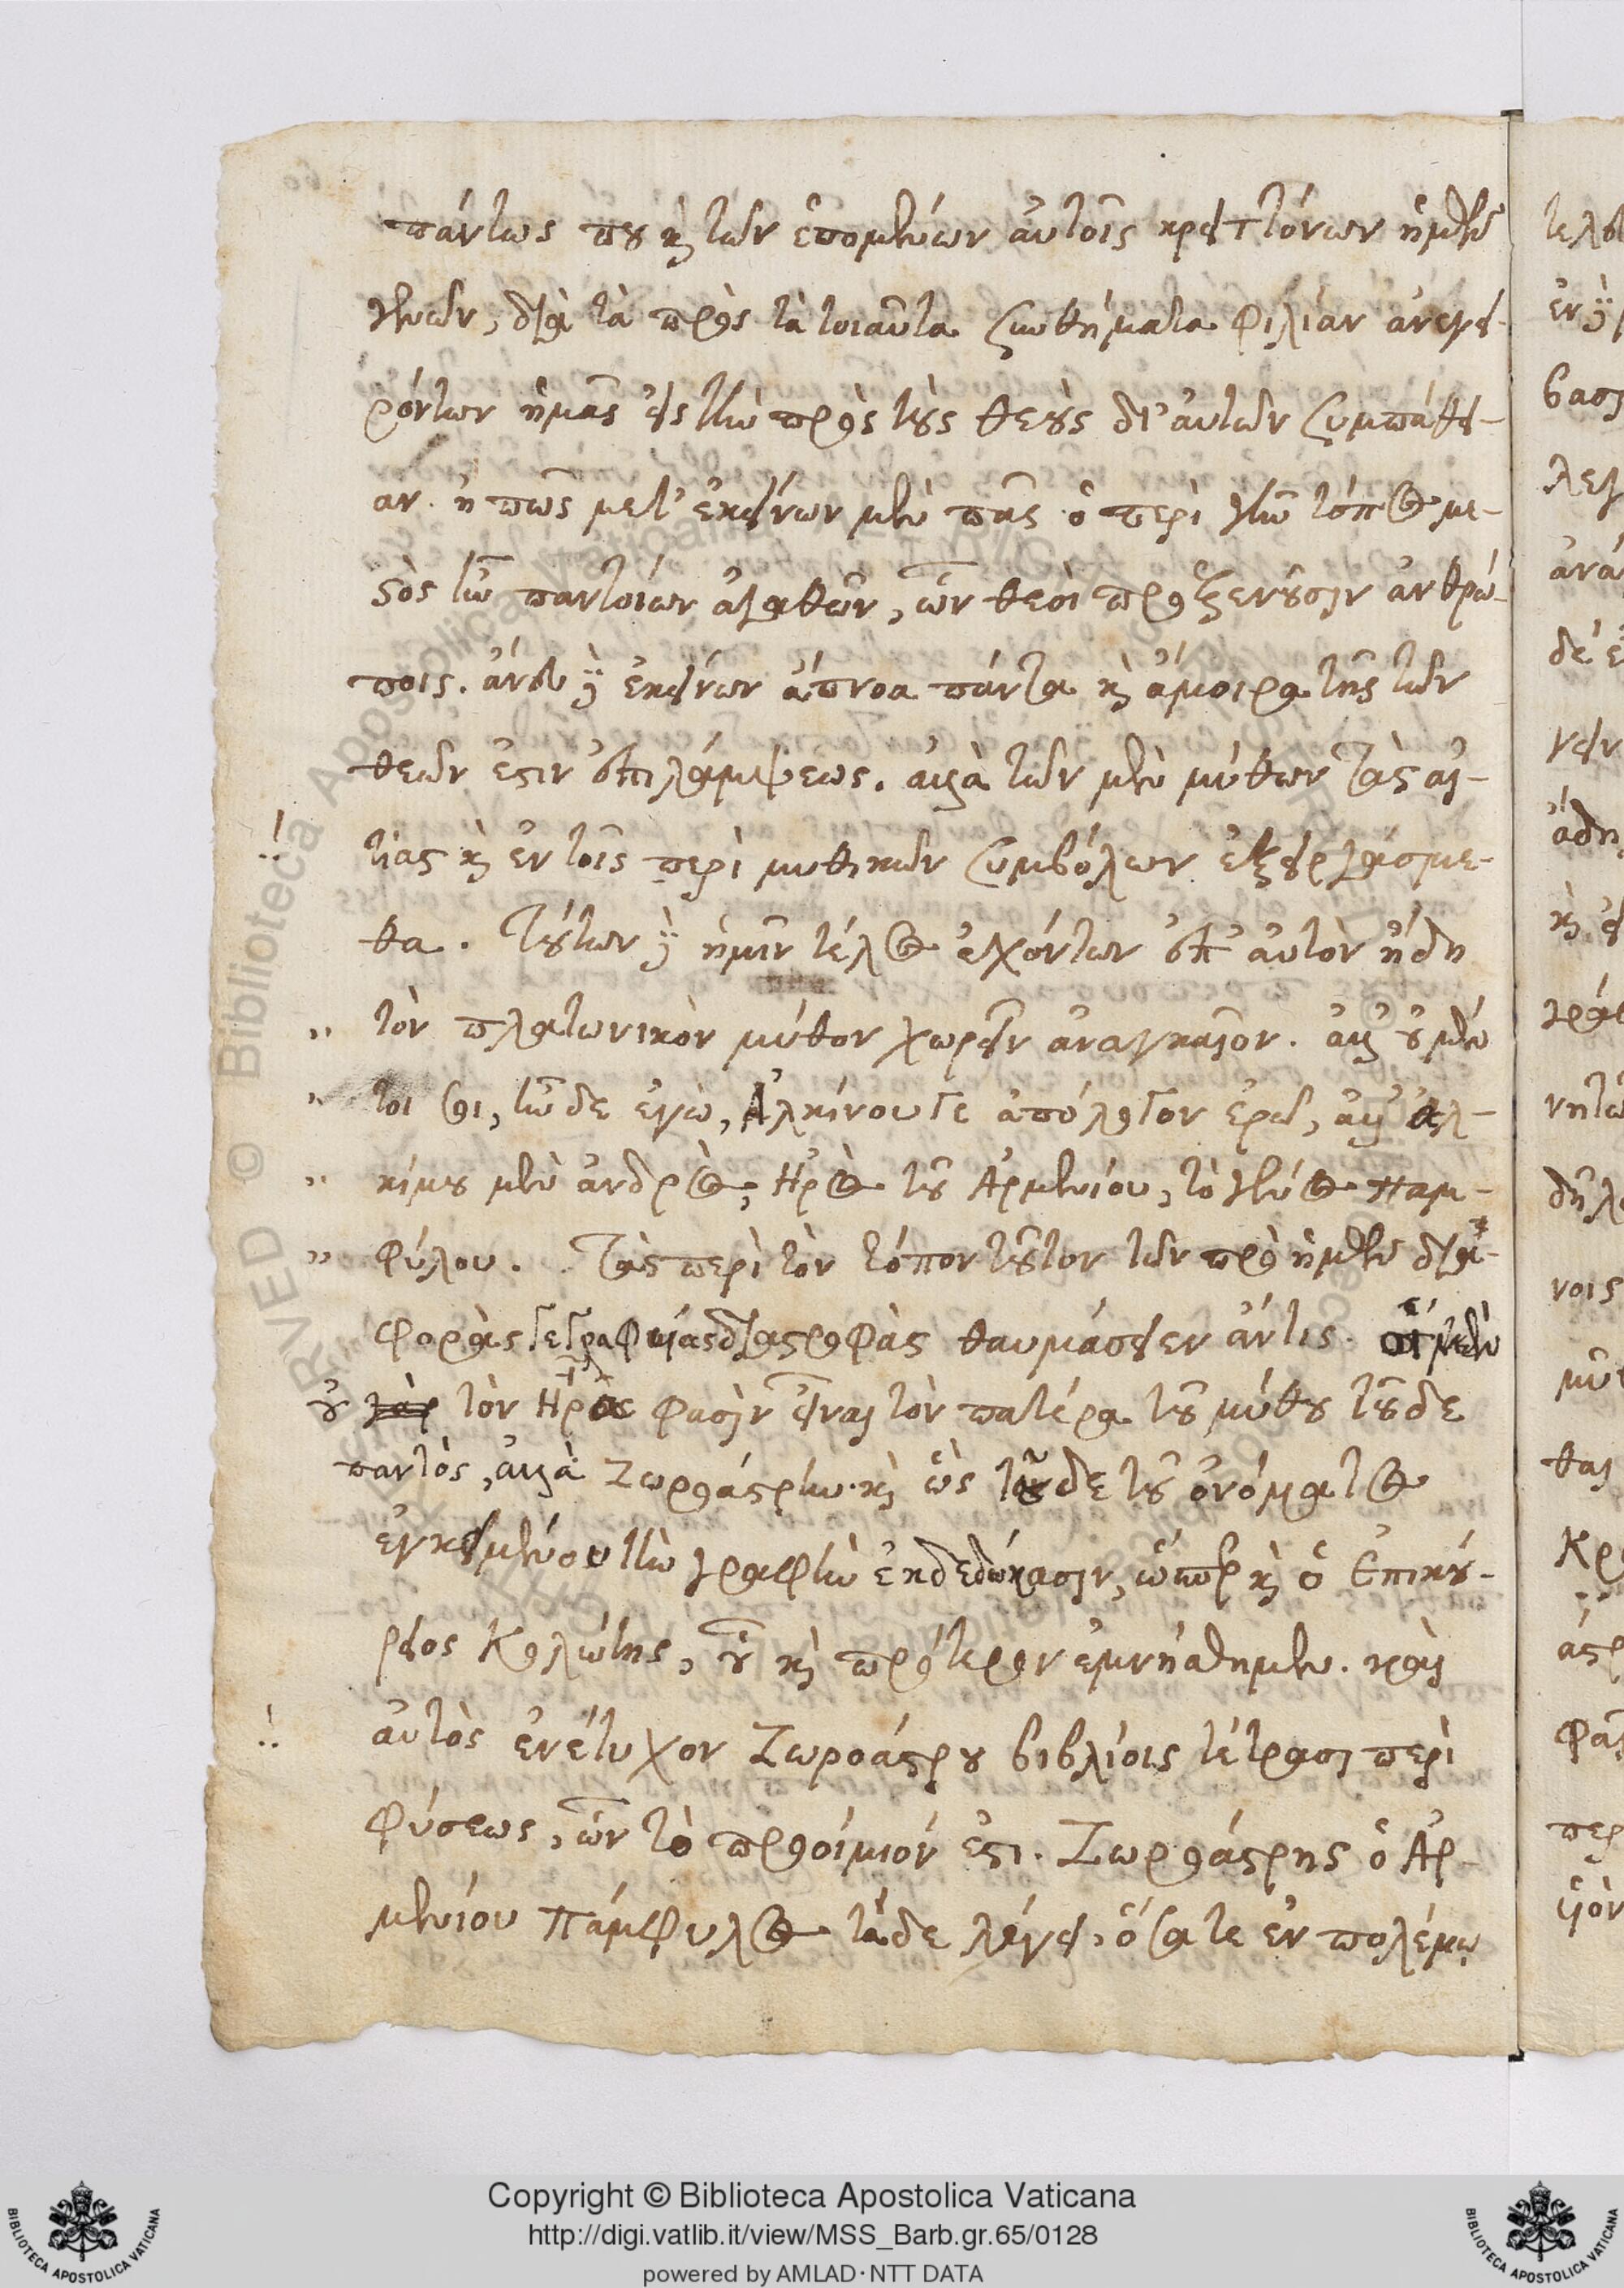 πάντως που καὶ τῶν ἑπομένων αὐτοῖς κρειττόνων ἡμῶν
γενῶν, διὰ τὰ πρὸς τὰ τοιαῦτα συνθήματα φιλίαν ἀνεγει-
ρόντων ἡμᾶς εἰς τὴν πρὸς τοὺς θεοὺς δι' αὐτῶν συμπάθει-
αν. ἤ πως μετ' ἐκείνων μὲν πᾶς ὁ περὶ γῆν τόπος με-
στὸς τῶν παντοίων ἀγαθῶν, ὧν θεοὶ προξενοῦσιν ἀνθρώ-
ποις. ἄνευ δὲ ἐκείνων ἄπνοα πάντα καὶ ἄμοιρα τῆς τῶν
θεῶν ἐστιν ἐπιλάμψεως. ἀλλὰ τῶν μὲν μύθων τὰς αἰ-
τίας καὶ ἐν τοῖς περὶ μυθικῶν συμβόλων ἐξειργάσμε-
θα. τούτων δὲ ἡμῖν τέλος ἐχόντων ἐπ' αὐτὸν ἤδη
" τὸν πλατωνικὸν μύθον χωρεῖν ἀναγκαῖον. ἀλλ' οὐ μέν
" τοι σοι, τῶ δε ἐγὼ, Ἀλκίνου γε ἀπόλογον ἐρῶ, ἀλλ' ἀλ-
" κίμου μὲν ἀνδρὸς, Ἠρὸς τοῦ Ἀρμενίου, τὸ γένος παμ-
" φύλου. τὰς περὶ τὸν τόπον τοῦτον τῶν πρὸ ἡμῶν δια-
φορὰς γεγραφυίας διαστροφὰς θαυμάσειεν ἄν τις. οἱ μὲν
οὐ τὸν Ἦρα φασὶν εἶναι τὸν πατέρα τοῦ μύθου τοῦδε
παντὸς, ἀλλὰ Ζωροάστρην. καὶ ὡς τοῦδε τοῦ ὀνόματος
ἐγκειμένου τὴν γραφὴν ἐκδεδώκασιν, ὥσπερ καὶ ὁ Ἐπικού-
ρειος Κολώτης, οὗ καὶ πρότερον ἐμνήσθημεν. καὶ
αὐτὸς ἐνέτυχον Ζωροάστρου βιβλίοις τέτρασι περὶ
φύσεως, ὧν τὸ προοίμιόν ἐστι. Ζωροάστρης ὁ Ἀρ-
μενίου πάμφυλος τάδε λέγει. ὅσα τε ἐν πολέμῳ
Copyright © Biblioteca Apostolica Vaticana
http://digi.vatlib.it/view/MSS_Barb.gr.65/0128
powered by AMLAD·NTT DATA
BIBLIOTECA APOSTOLICA VATICANA
BIBLIOTECA APOSTOLICA VATICANA